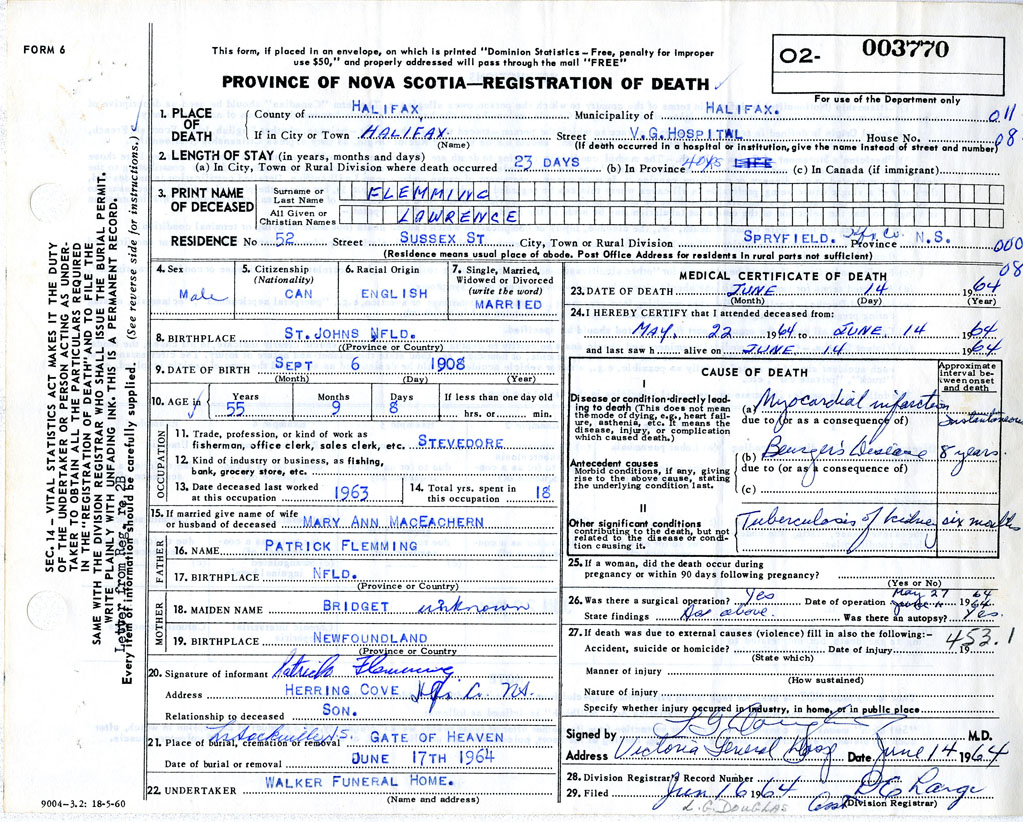 FORM 6
This form, if placed in an envelope, on which is printed "Dominion Statistics – Free, penalty for improper
use $50," and properly addressed will pass through the mail "FREE"
O2- 003770
For use of the Department only
PROVINCE OF NOVA SCOTIA—REGISTRATION OF DEATH
1. PLACE OF DEATH
County of HALIFAX Municipality of HALIFAX. 011
If in City or Town HALIFAX. Street V.G. HOSPITAL House No. 08
(Name) (If death occurred in a hospital or institution, give the name instead of street and number)
2. LENGTH OF STAY (in years, months and days)
(a) In City, Town or Rural Division where death occurred 23 DAYS (b) In Province 40yrs LIFE (c) In Canada (if immigrant)
3. PRINT NAME OF DECEASED
Surname or Last Name FLEMMING
All Given or Christian Names LAWRENCE
RESIDENCE No 52 Street SUSSEX ST City, Town or Rural Division SPRYFIELD. Hfx. Co. Province N.S. 000
(Residence means usual place of abode. Post Office Address for residents in rural parts not sufficient) 08
4. Sex Male
5. Citizenship (Nationality) CAN
6. Racial Origin ENGLISH
7. Single, Married, Widowed or Divorced (write the word) MARRIED
8. BIRTHPLACE ST. JOHNS NFLD.
((Province or Country)
9. DATE OF BIRTH SEPT 6 1908
(Month) (Day) (Year)
10. AGE in Years 55 Months 9 Days 8 If less than one day old hrs. or min.
OCCUPATION
11. Trade, profession, or kind of work as
fisherman, office clerk, sales clerk, etc. STEVEDORE
12. Kind of industry or business, as fishing,
bank, grocery store, etc.
13. Date deceased last worked at this occupation 1963
14. Total yrs. spent in this occupation 18
15. If married give name of wife
or husband of deceased MARY ANN MACEACHERN
FATHER
16. NAME PATRICK FLEMMING
17. BIRTHPLACE NFLD.
(Province or Country)
MOTHER
18. MAIDEN NAME BRIDGET unknown
19. BIRTHPLACE NEWFOUNDLAND
(Province or Country)
20. Signature of informant Patrick Flemming
Address HERRING COVE Hfx. Co. NS.
Relationship to deceased SON.
21. Place of burial, cremation or removal Lr Sackville N.S. GATE OF HEAVEN
Date of burial or removal JUNE 17TH 1964
22. UNDERTAKER WALKER FUNERAL HOME.
(Name and address)
9004–3.2: 18-5-60
SEC. 14 – VITAL STATISTICS ACT MAKES IT THE DUTY
OF THE UNDERTAKER OR PERSON ACTING AS UNDER-
TAKER TO OBTAIN ALL THE PARTICULARS REQUIRED
IN THE "REGISTRATION OF DEATH" AND TO FILE THE
SAME WITH THE DIVISION REGISTRAR WHO SHALL ISSUE THE BURIAL PERMIT.
WRITE PLAINLY WITH UNFADING INK. THIS IS A PERMANENT RECORD.
Letter from Reg. re 2B
Every item of information should be carefully supplied. (See reverse side for instructions.)
MEDICAL CERTIFICATE OF DEATH
23. DATE OF DEATH JUNE 14 1964
(Month) (Day) (Year)
24. I HEREBY CERTIFY that I attended deceased from:
MAY, 22 1964 to JUNE 14 1964
and last saw h alive on JUNE 14 1964
CAUSE OF DEATH
Approximate interval between onset and death
I
Disease or condition-directly leading to death (This does not
mean the mode of dying, e.g., heart failure, asthenia, etc. It means the
disease, injury, or complication which caused death.)
(a) Myocardial infarction instantaneous
due to (or as a consequence of)
(b) Beurger's Disease 8 years
due to (or as a consequence of)
(c)
Antecedent causes
Morbid conditions, if any, giving
rise to the above cause, stating
the underlying condition last.
II
Other significant conditions
contributing to the death, but not
related to the disease or condition
causing it.
Tuberculosis of kidney six months
25. If a woman, did the death occur during
pregnancy or within 90 days following pregnancy?
(Yes or No)
26. Was there a surgical operation? Yes Date of operation May 27 64 1964
State findings As above. Was there an autopsy? Yes.
27. If death was due to external causes (violence) fill in also the following:– 453.1
Accident, suicide or homicide? Date of injury 19
(State which)
Manner of injury
(How sustained)
Nature of injury
Specify whether injury occurred in industry, in home, or in public place
Signed by L G Douglas M.D.
Address Victoria General Hosp Date June 14 1964
28. Division Registrar's Record Number
29. Filed Jun 16 1964 D E Large
L. G. DOUGLAS Asst (Division Registrar)